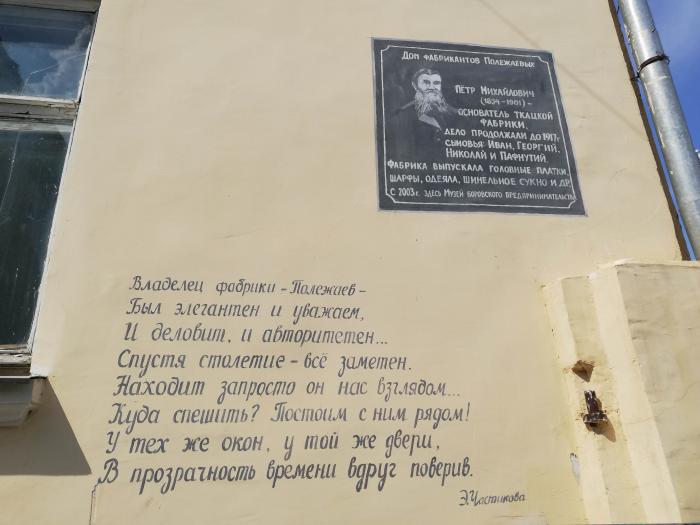 Дом фабрикантов Полежаевых
Пётр Михайлович
(1834-1901) -
основатель ткацкой
фабрики.
дело продолжали до 1917г.
сыновья: Иван, Георгий,
Николай и Пафнутий.
Фабрика выпускала головные платки,
шарфы, одеяла, шинельное сукно и др.
С 2003г. здесь Музей боровского предпринимательства
Владелец фабрики - Полежаев -
Был элегантен и уважаем,
И деловит, и авторитетен...
Спустя столетие - всё заметен.
Находит запросто он нас взглядом...
Куда спешить? Постоим с ним рядом!
У тех же окон, у той же двери,
В прозрачность времени вдруг поверив.
Э.Частикова